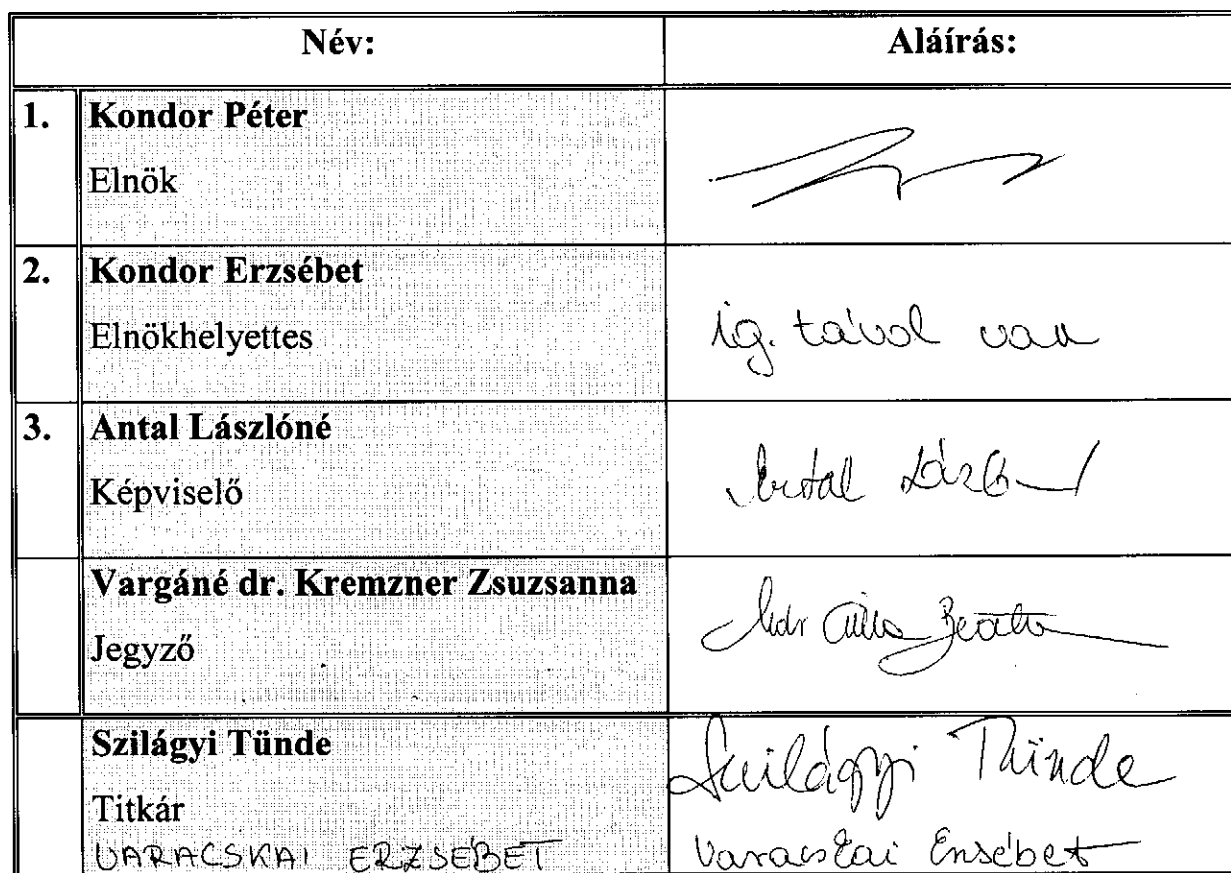 Név: Aláírás:
1. Kondor Péter
Elnök
2. Kondor Erzsébet
Elnökhelyettes
ig. távol van
3. Antal Lászlóné
Képviselő
Antal László
Vargáné dr. Kremzner Zsuzsanna
Jegyző
Beáta
Szilágyi Tünde
Titkár
Szilágyi Tünde
VARACSKAI ERZSÉBET Varacskai Erzsébet